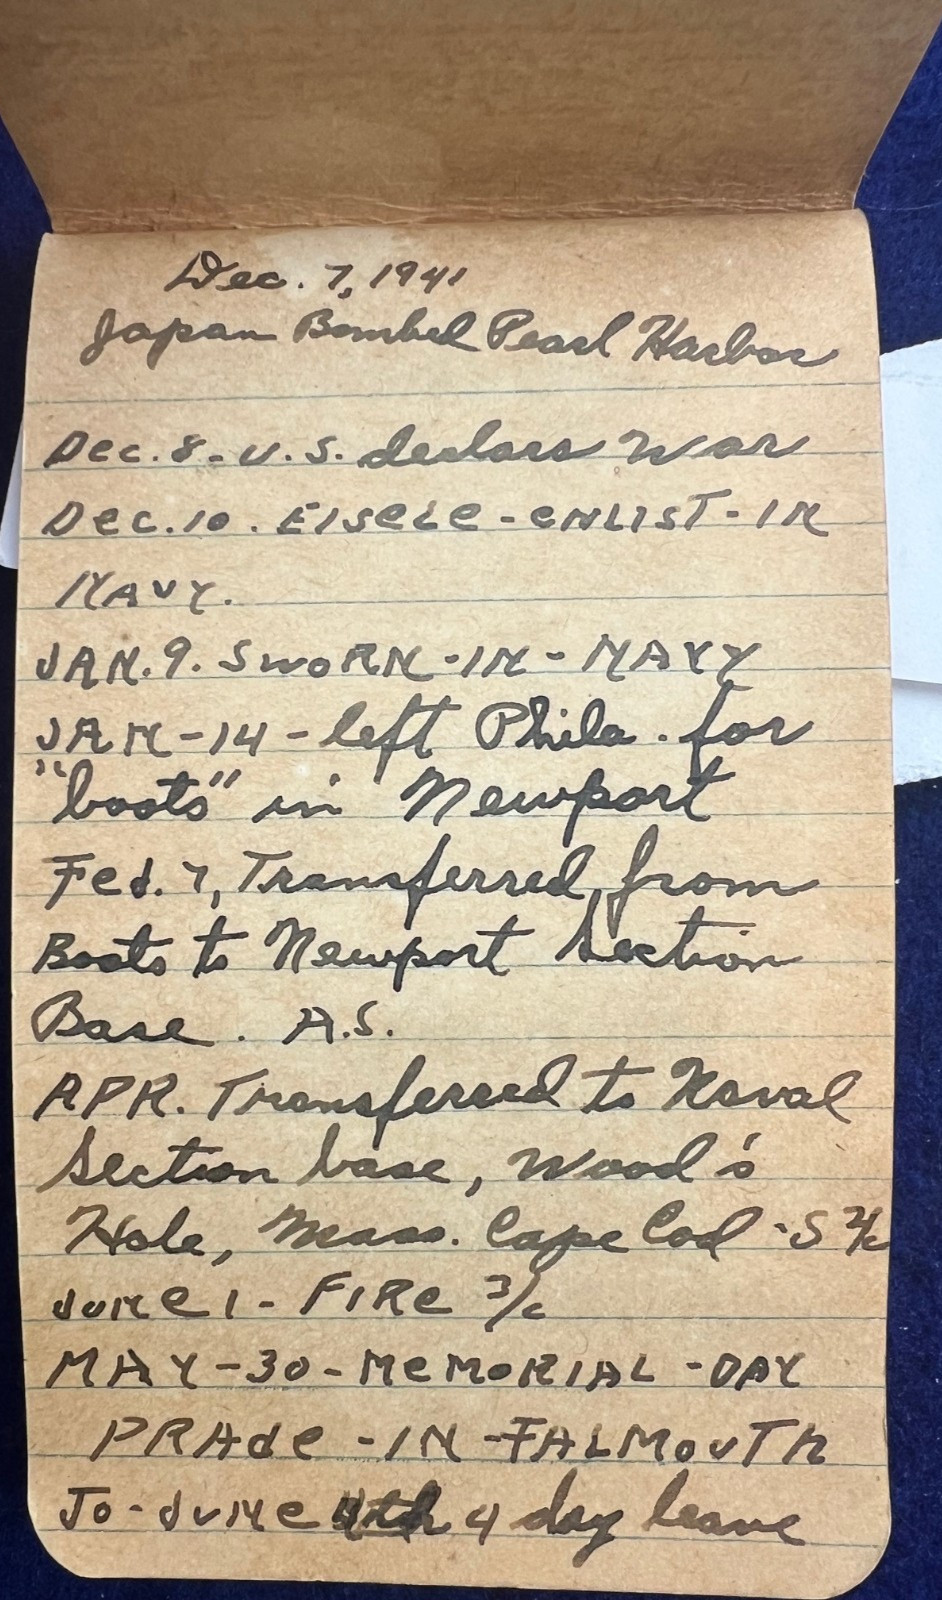 Dec. 7, 1941
Japan Bombed Pearl Harbor
Dec. 8 - U.S. declars War
Dec. 10. EISeLe - eNLIST - IN
NAVY.
JAN. 9. SWORN - IN - NAVY
JAN - 14 - left Phila. for
"boots" in Newport
Feb. 7, Transferred from
Boots to Newport Section
Base. A.S.
APR. Transferred to Naval
Section base, Wood's
Hole, Mass. Cape Cod - S 2/c
JUNe 1 - FIRe 3/c
MAY - 30 - MeMORIAL - DAY
PRAde - IN - FALMOUTh
To - JUNe 4th 4 day leave